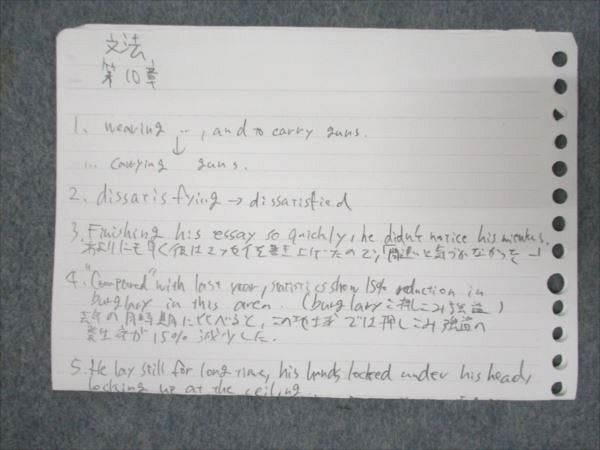 文法
第10章
1. wearing …, and to carry guns.
… carrying guns.
2. dissatisfying → dissatisfied
3. Finishing his essay so quickly, he didn't notice his
あまりにも早く彼はエッセイを書き上げたので、間違いに気づかなかった
4. "Compared" with last year, statistics show 15% reduction in
burglary in this area. (burglary = 押しこみ強盗)
去年の同時期にくらべると、この地域では押しこみ強盗の
発生率が15%減少した。
5. He lay still for long time, his hands locked under his head,
looking up at the ceiling.